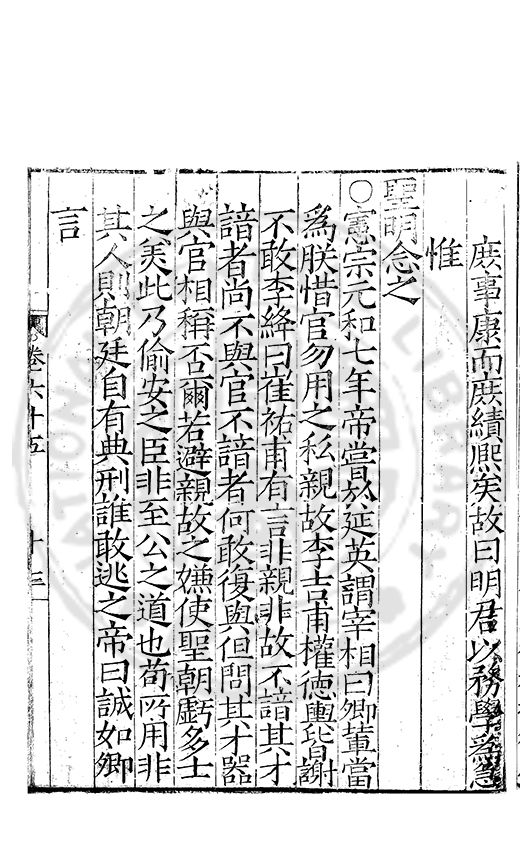 庶事康而庶績熈矣故曰明君以務學為急
惟
聖明念之
○憲宗元和七年帝嘗於延英謂宰相曰卿輩當
為朕惜官勿用之私親故李吉甫權德輿皆謝
不敢李絳曰崔祐甫有言非親非故不諳其才
諳者尚不與官不諳者何敢復與但問其才器
與官相稱否爾若避親故之嫌使聖朝虧多士
之美此乃偷安之臣非至公之道也苟所用非
其人則朝廷自有典刑誰敢逃之帝曰誠如卿
言
卷六十五 十三